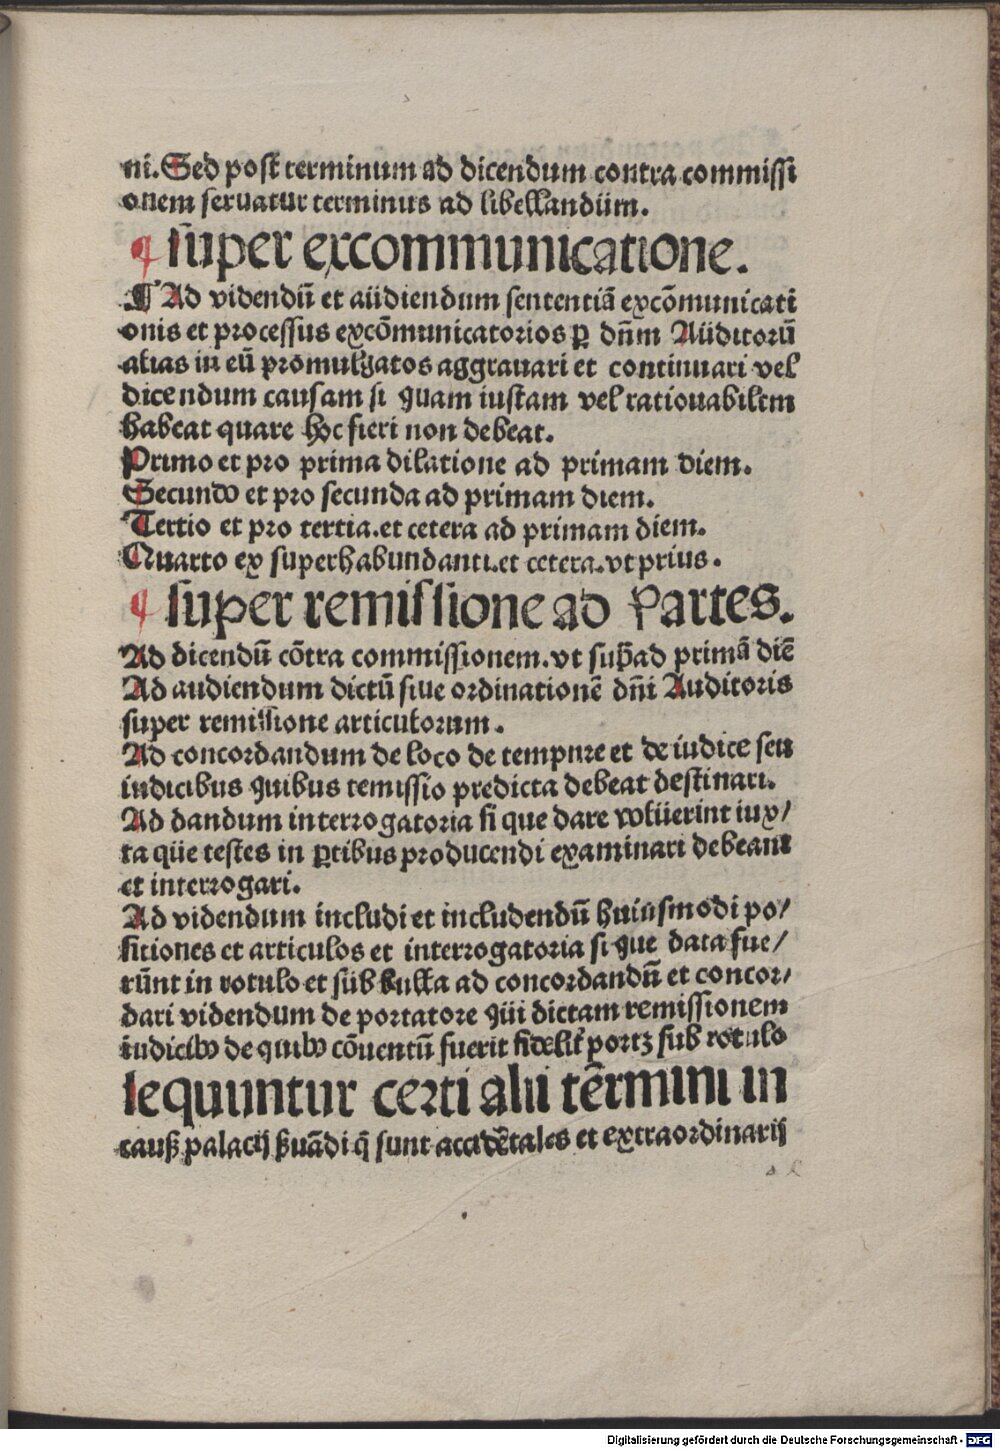 ni. Sed post terminum ad dicendum contra commissi
onem seruatur terminus ad libellandüm.
¶ super excommunicatione.
¶ Ad videndū et aüdiendum sententiā excōmunicati
onis et processus excōmunicatorios ꝑ dn̄m Aüditorū
alias in eū promulgatos aggrauari et continuari vel
dicendum causam si quam iustam vel rationabilem
habeat quare hoc fieri non debeat.
Primo et pro prima dilatione ad primam diem.
Secundo et pro secunda ad primam diem.
Tertio et pro tertia. et cetera ad primam diem.
Quarto ex superhabundanti. et cetera. vt prius.
¶ super remissione ad Partes.
Ad dicendū cōtra commissionem. vt suꝑ ad primā diē
Ad audiendum dictū siue ordinationē dn̄i Auditoris
super remissione articulorum.
Ad concordandum de loco de tempore et de iudice seu
iudicibus quibus remissio predicta debeat destinari.
Ad dandum interrogatoria si que dare volüerint iux/
ta qüe testes in ꝑtibus producendi examinari debeant
et interrogari.
Ad videndum includi et includendū huiusmodi po/
sitiones et articulos et interrogatoria si que data fue/
rūnt in rotulo et süb bulla ad concordandū et concor/
dari videndum de portatore qüi dictam remissionem
iudicibꝰ de quibꝰ cōuentū fuerit fidelit̄ portꝫ sub rotulo
sequuntur certi alii tērmini in
cauß palacij ßuādi q̄ sunt accidētales et extraordinarij